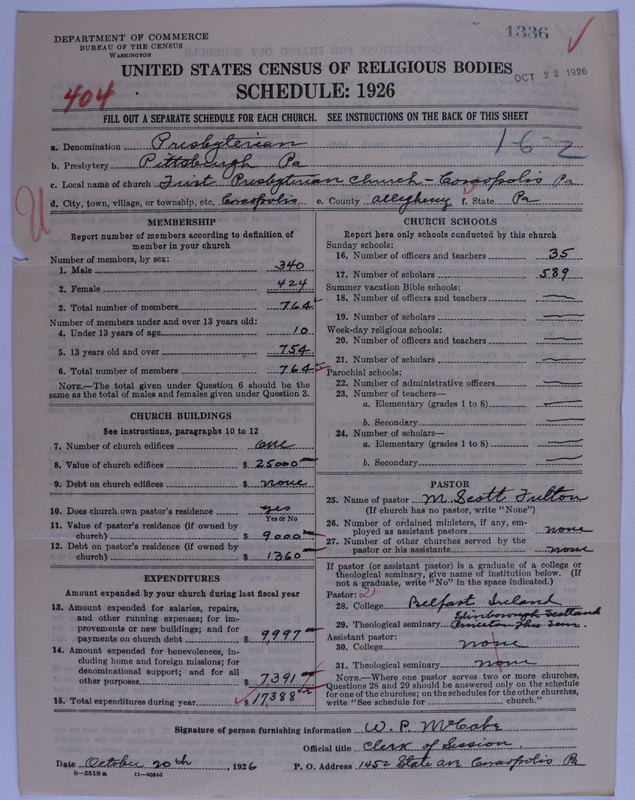 1336
DEPARTMENT OF COMMERCE
BUREAU OF THE CENSUS
WASHINGTON
UNITED STATES CENSUS OF RELIGIOUS BODIES
OCT 22 1926
404
SCHEDULE: 1926
FILL OUT A SEPARATE SCHEDULE FOR EACH CHURCH. SEE INSTRUCTIONS ON THE BACK OF THIS SHEET
a. Denomination Presbyterian
1-6-2
b. Presbytery Pittsburgh Pa
c. Local name of church First Presbyterian Church - Coraopolis Pa
d. City, town, village, or township, etc. Coraopolis e. County Allegheny f. State Pa
MEMBERSHIP
Report number of members according to definition of
member in your church
Number of members, by sex:
1. Male 340
2. Female 424
3. Total number of members 764
Number of members under and over 13 years old:
4. Under 13 years of age 10
5. 13 years old and over 754
6. Total number of members 764
NOTE.—The total given under Question 6 should be
same as the total of males and females given under Question 3.
CHURCH BUILDINGS
See instructions, paragraphs 10 to 12
7. Number of church edifices One
8. Value of church edifices $ 25000
9. Debt on church edifices $ none
10. Does church own pastor's residence yes
Yes or No
11. Value of pastor's residence (if owned by
church) $ 9000
12. Debt on pastor's residence (if owned by
church) $ 1360
EXPENDITURES
Amount expended by your church during last fiscal year
13. Amount expended for salaries, repairs,
and other running expenses; for im-
provements or new buildings; and for
payments on church debt $ 9997
14. Amount expended for benevolences, in-
cluding home and foreign missions; for
denominational support; and for all
other purposes $ 7391
15. Total expenditures during year $ 17388
CHURCH SCHOOLS
Report here only schools conducted by this church
Sunday schools:
16. Number of officers and teachers 35
17. Number of scholars 589
Summer vacation Bible schools:
18. Number of officers and teachers
19. Number of scholars
Week-day religious schools:
20. Number of officers and teachers
21. Number of scholars
Parochial schools:
22. Number of administrative officers
23. Number of teachers—
a. Elementary (grades 1 to 8)
b. Secondary
24. Number of scholars—
a. Elementary (grades 1 to 8)
b. Secondary
PASTOR
25. Name of pastor M. Scott Fulton
(If church has no pastor, write "None")
26. Number of ordained ministers, if any, em-
ployed as assistant pastors none
27. Number of other churches served by the
pastor or his assistants none
If pastor (or assistant pastor) is a graduate of a college or
theological seminary, give name of institution below. (If
not a graduate, write "No" in the space indicated.)
Pastor: 2
28. College Belfast Ireland
Edinborough Scotland
29. Theological seminary Princeton Theo. Sem.
Assistant pastor:
30. College none
31. Theological seminary none
NOTE.—Where one pastor serves two or more churches,
Questions 28 and 29 should be answered only on the schedule
for one of the churches; on the schedules for the other churches,
write "See schedule for church."
Signature of person furnishing information W. P. McCabe
Official title Clerk of Session
Date October 20th, 1926 P. O. Address 1452 State Ave Coraopolis Pa
8—5518 a 11—9054d